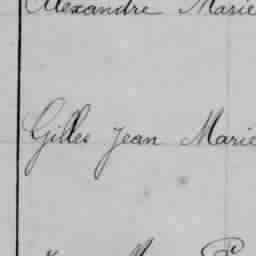 Alexandre Marie
Gilles Jean Marie